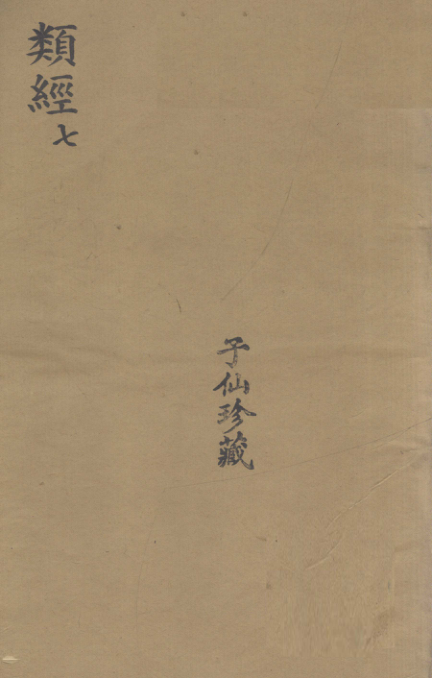 類經七
子仙珍藏